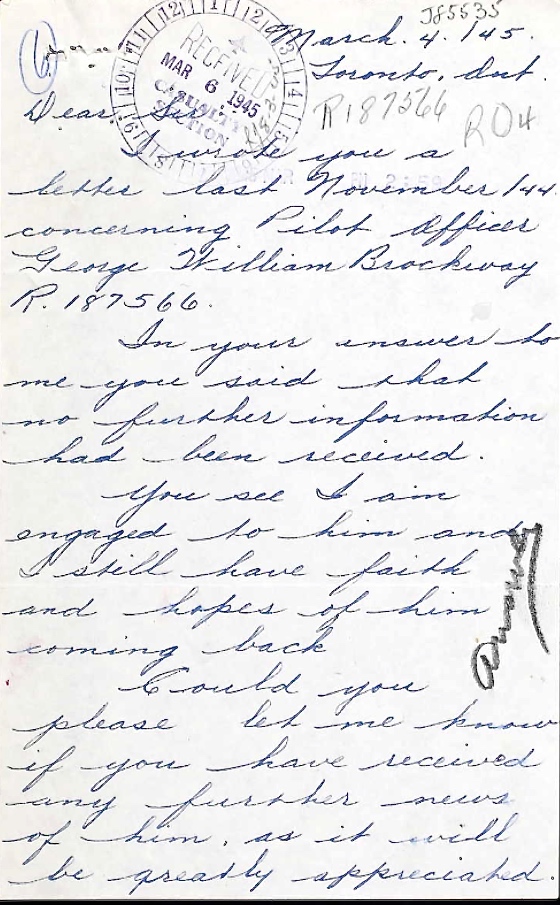 J85535
March. 4. /45.
Toronto, Ont.
RECEIVED
MAR 6 1945
CASUALTY
SECTION
R187566
RO4
Dear Sir
I wrote you a
letter last November /44
concerning Pilot Officer
George William Brockway
R. 187566.
In your answer to
me you said that
no further information
had been received.
You see I am
engaged to him and
I still have faith
and hopes of him
coming back
Could you
please let me know
if you have received
any further news
of him, as it will
be greatly appreciated.